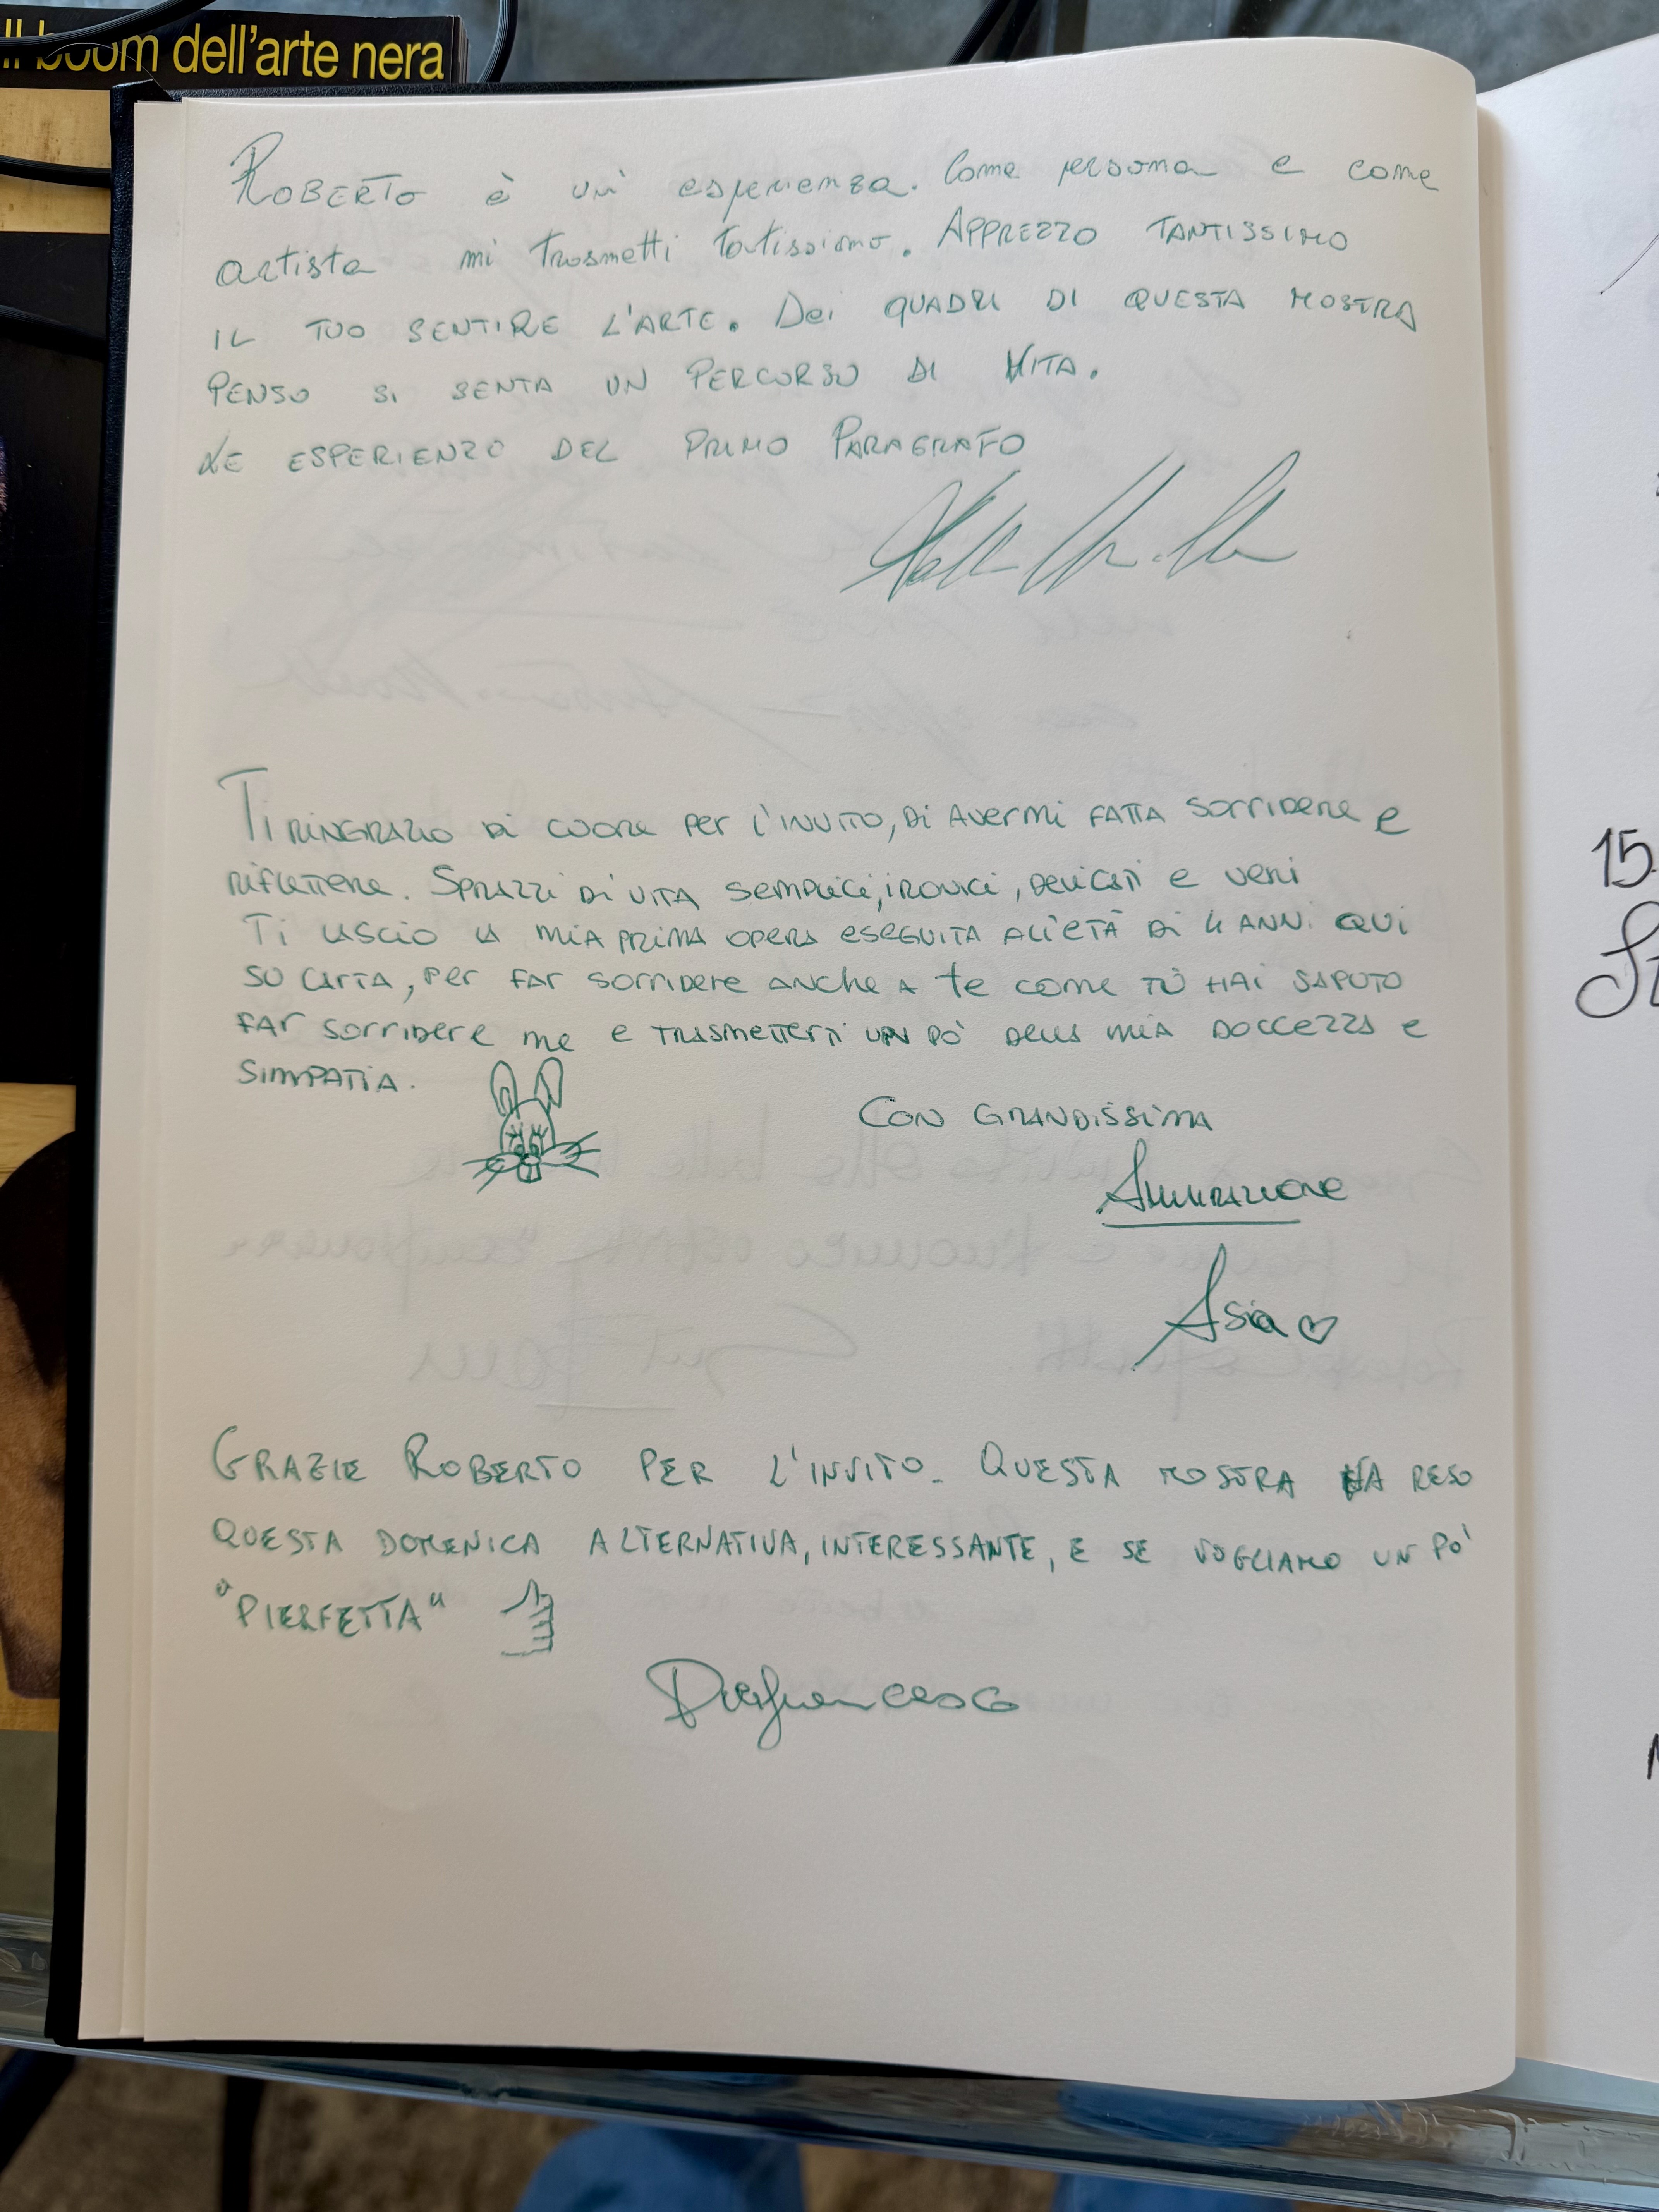 Il boom dell'arte nera
ROBERTO è un' esperienza. Come persona e come
artista mi trasmetti tatissimo. APPREZZO TANTISSIMO
IL TUO SENTIRE L'ARTE. Dei QUADRI DI QUESTA MOSTRA
PENSO SI SENTA UN PERCORSO DI VITA.
LE ESPERIENZO DEL PRIMO PARAGRAFO
Ti RINGRAZIO Di CUORE Per L'INVITO, Di AverMi FATTA SOrriDere e
riFLETTERE. SPRAZZI Di VITA SEMPLICI, IRONICI, DELICATI e Veri
Ti LASCIO LA MIA PRIMA OPERA ESEGUITA ALL'ETÀ Di 4 ANNi QUi
SU CARTA, Per FAR SOrriDere ANChe A te COme TU HAI SAPUTO
FAR SOrriDere me e TRASMETTERTI UN PÒ DELLA MIA DOLCEZZA e
SIMPATIA.
CON GRANDISSIMA
AMMIRAZIONE
Asia
GRAZIE ROBERTO PER L'INVITO. QUESTA MOSTRA HA RESO
QUESTA DOMENICA ALTERNATIVA, INTERESSANTE, E SE VOGLIAMO UN PO'
"PIERFETTA"
Pierfrancesco
15